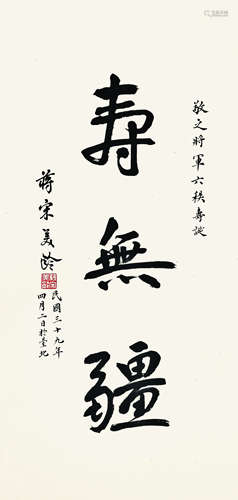 敬之將軍六秩壽誕
壽無疆
蔣宋美齡
民國三十九年
四月二日於臺北